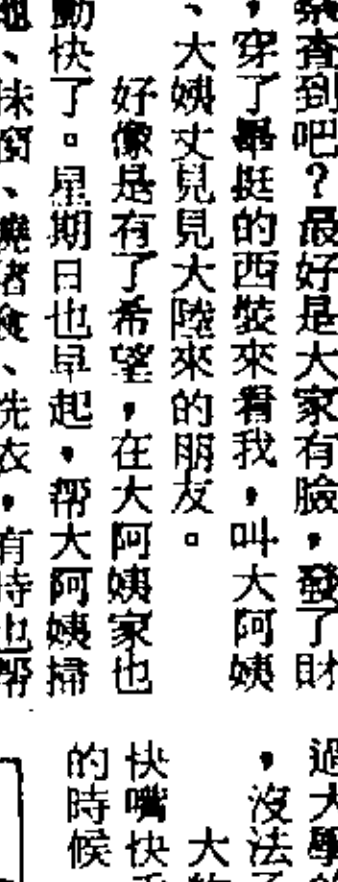 查到吧？最好是大家有臉，發了財
，穿了畢挺的西裝來看我，叫大阿姨
、大姨丈見見大陸來的朋友。
好像是有了希望，在大阿姨家也
動快了。星期日也早起，帮大阿姨掃
地、抹窗、燒豬食、洗衣，有時也帮
過大學的
，沒法子
大的
快嘴快手
的時候